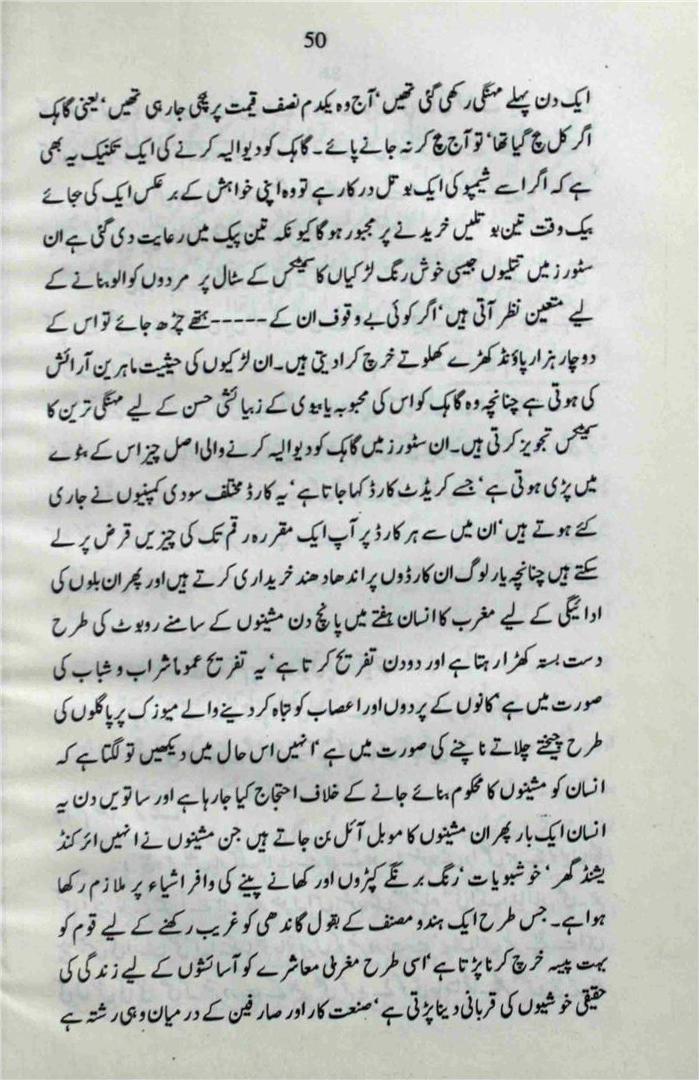 50
ایک دن پہلے مہنگی رکھی گئی تھیں‘ آج وہ یکدم نصف قیمت پر بیچی جا رہی تھیں‘ یعنی گاہک
اگر کل بچ گیا تھا‘ تو آج بچ کر نہ جانے پائے۔ گاہک کو دیوالیہ کرنے کی ایک تکنیک یہ بھی
ہے کہ اگر اسے شیمپو کی ایک بوتل درکار ہے تو وہ اپنی خواہش کے برعکس ایک کی بجائے
بیک وقت تین بوتلیں خریدنے پر مجبور ہو گا کیونکہ تین پیک میں رعایت دی گئی ہے ان
سٹورز میں تتلیوں جیسی خوش رنگ لڑکیاں کاسمیٹکس کے سٹال پر مردوں کو الو بنانے کے
لیے متعین نظر آتی ہیں‘ اگر کوئی بے وقوف ان کے ----- ہتھے چڑھ جائے تو اس کے
دو چار ہزار پاؤنڈ کھڑے کھلوتے خرچ کرا دیتی ہیں۔ ان لڑکیوں کی حیثیت ماہرین آرائش
کی ہوتی ہے چنانچہ وہ گاہک کو اس کی محبوبہ یا بیوی کے زیبائشی حسن کے لیے مہنگی ترین کا
سمیٹکس تجویز کرتی ہیں۔ ان سٹورز میں گاہک کو دیوالیہ کرنے والی اصل چیز اس کے بٹوے
میں پڑی ہوتی ہے‘ جسے کریڈٹ کارڈ کہا جاتا ہے‘ یہ کارڈ مختلف سودی کمپنیوں نے جاری
کئے ہوتے ہیں‘ ان میں سے ہر کارڈ پر آپ ایک مقررہ رقم تک کی چیزیں قرض پر لے
سکتے ہیں چنانچہ یار لوگ ان کارڈوں پر اندھا دھند خریداری کرتے ہیں اور پھر ان بلوں کی
ادائیگی کے لیے مغرب کا انسان ہفتے میں پانچ دن مشینوں کے سامنے روبوٹ کی طرح
دست بستہ کھڑا رہتا ہے اور دو دن تفریح کرتا ہے‘ یہ تفریح عموماً شراب و شباب کی
صورت میں ہے‘ کانوں کے پردوں اور اعصاب کو تباہ کر دینے والے میوزک پر پاگلوں کی
طرح چیختے چلاتے ناچنے کی صورت میں ہے‘ انہیں اس حال میں دیکھیں تو لگتا ہے کہ
انسان کو مشینوں کا محکوم بنائے جانے کے خلاف احتجاج کیا جا رہا ہے اور ساتویں دن یہ
انسان ایک بار پھر ان مشینوں کا موبل آئل بن جاتے ہیں جن مشینوں نے انہیں ائرکنڈ
یشنڈ گھر‘ خوشبویات‘ رنگ برنگے کپڑوں اور کھانے پینے کی وافر اشیاء پر ملازم رکھا
ہوا ہے۔ جس طرح ایک ہندو مصنف کے بقول گاندھی کو غریب رکھنے کے لیے قوم کو
بہت پیسہ خرچ کرنا پڑتا ہے‘ اسی طرح مغربی معاشرے کو آسائشوں کے لیے زندگی کی
حقیقی خوشیوں کی قربانی دینا پڑتی ہے‘ صنعت کار اور صارفین کے درمیان وہی رشتہ ہے